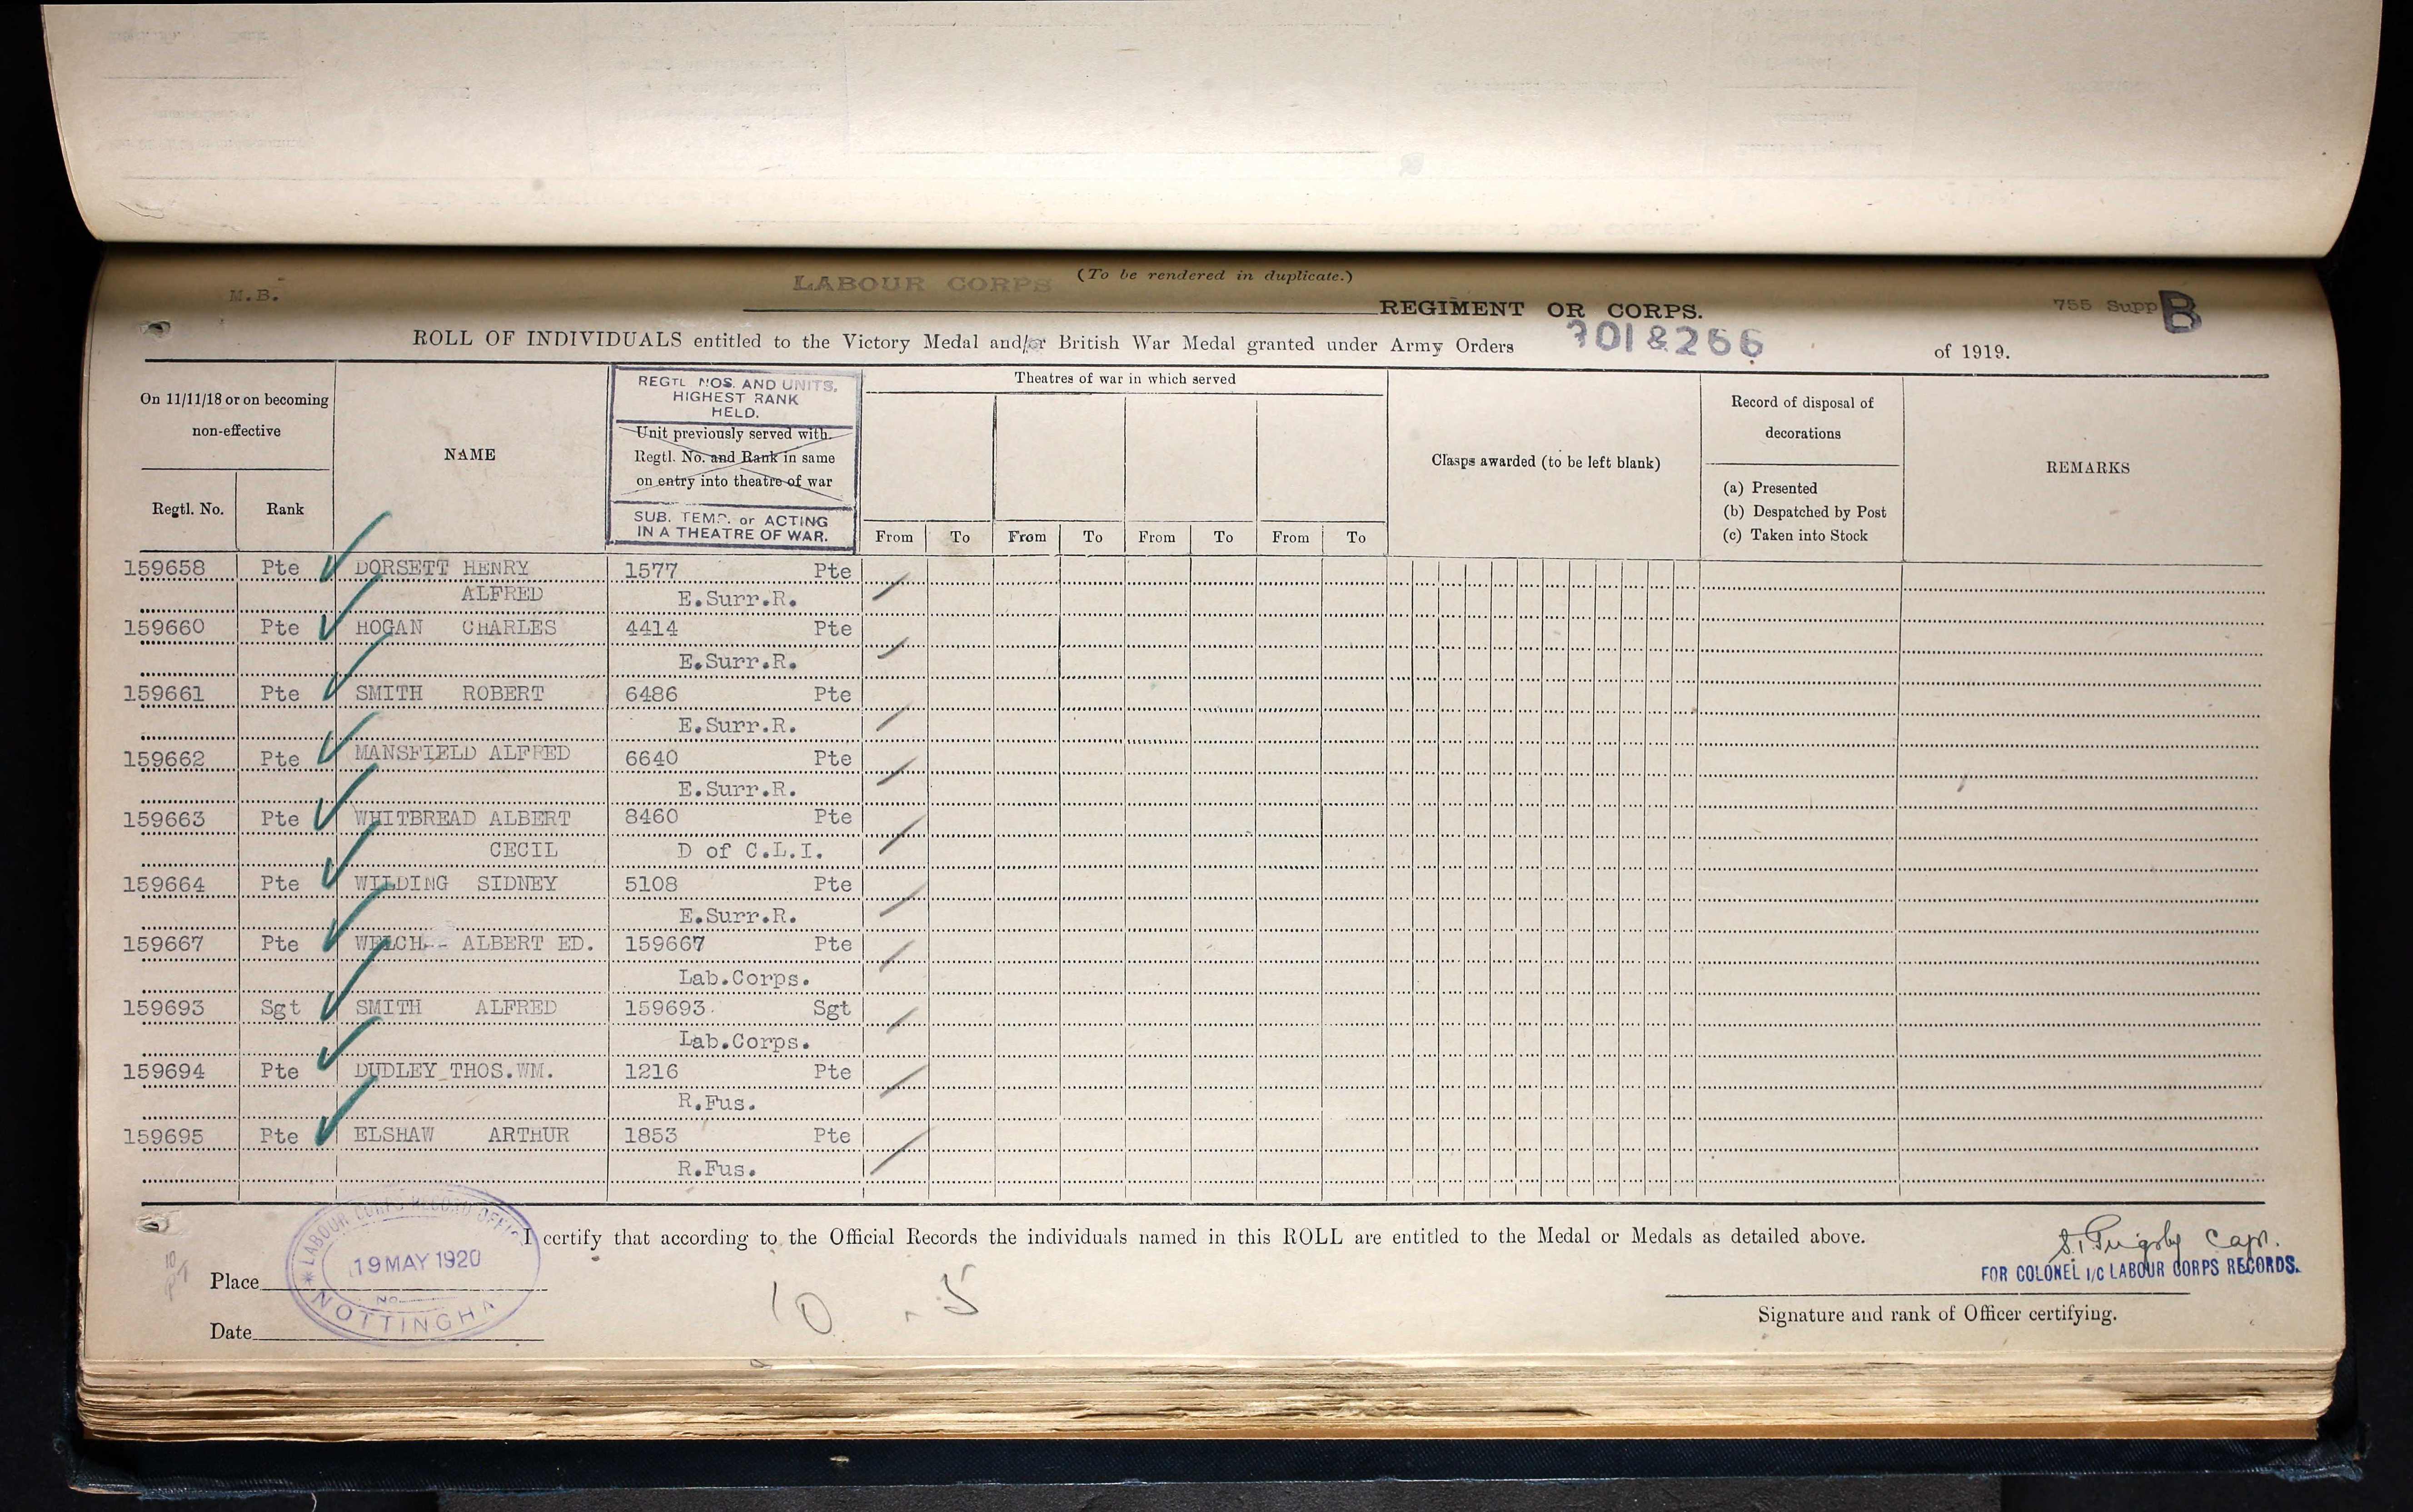 LABOUR CORPS (To be rendered in duplicate.)
M.B. REGIMENT OR CORPS. 755 Supp B
ROLL OF INDIVIDUALS entitled to the Victory Medal and/or British War Medal granted under Army Orders 301 & 266 of 1919.
On 11/11/18 or on becoming
non-effective
Regtl. No. Rank
NAME
REGTL NOS. AND UNITS,
HIGHEST RANK
HELD.
Unit previously served with.
Regtl. No. and Rank in same
on entry into theatre of war
SUB. TEMP. or ACTING
IN A THEATRE OF WAR.
Theatres of war in which served
From To From To From To From To
Clasps awarded (to be left blank)
Record of disposal of
decorations
(a) Presented
(b) Despatched by Post
(c) Taken into Stock
REMARKS
159658 Pte DORSETT HENRY 1577 Pte
ALFRED E.Surr.R.
159660 Pte HOGAN CHARLES 4414 Pte
E.Surr.R.
159661 Pte SMITH ROBERT 6486 Pte
E.Surr.R.
159662 Pte MANSFIELD ALFRED 6640 Pte
E.Surr.R.
159663 Pte WHITBREAD ALBERT 8460 Pte
CECIL D of C.L.I.
159664 Pte WILDING SIDNEY 5108 Pte
E.Surr.R.
159667 Pte WELCH ALBERT ED. 159667 Pte
Lab.Corps.
159693 Sgt SMITH ALFRED 159693 Sgt
Lab.Corps.
159694 Pte DUDLEY THOS.WM. 1216 Pte
R.Fus.
159695 Pte ELSHAW ARTHUR 1853 Pte
R.Fus.
I certify that according to the Official Records the individuals named in this ROLL are entitled to the Medal or Medals as detailed above.
LABOUR CORPS RECORD OFFIC
19 MAY 1920
No
NOTTINGHA
Place
Date
10 5
Capt.
FOR COLONEL I/C LABOUR CORPS RECORDS.
Signature and rank of Officer certifying.